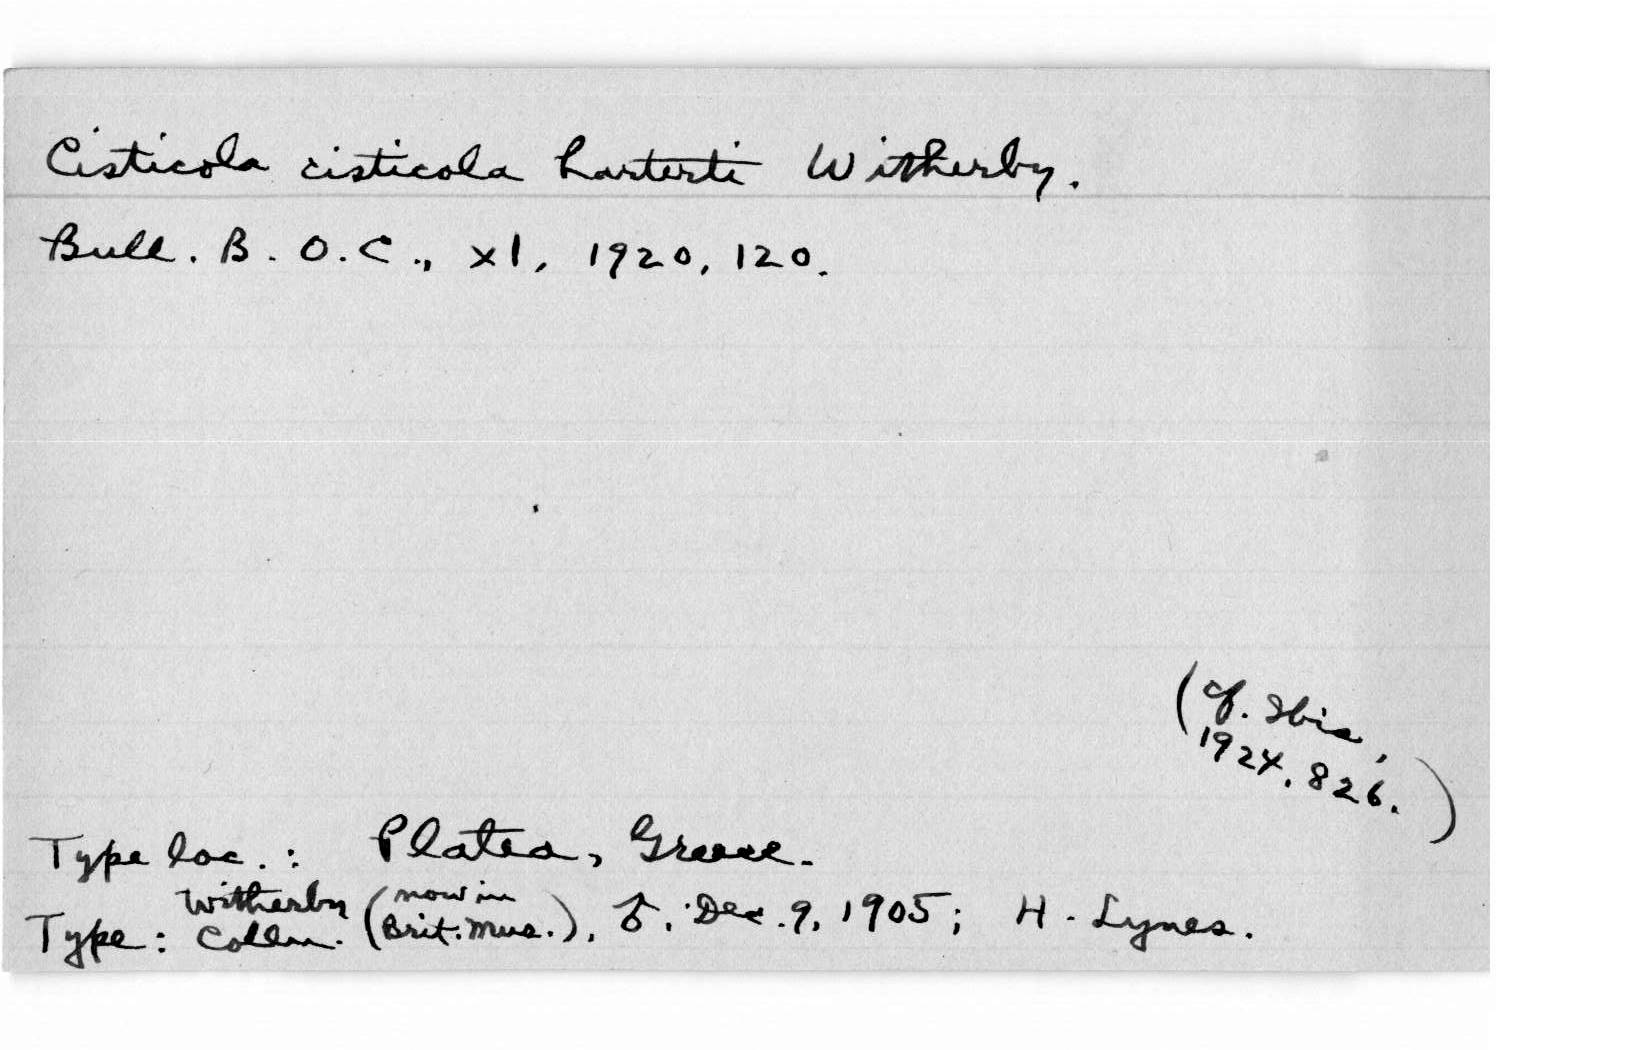 Cisticola cisticola harterti Witherby.
Bull. B. O. C., xl, 1920, 120.
(cf. Ibis,
1924, 826.)
Type loc.: Platea, Greece.
Type: Witherby Colln. (now in Brit. Mus.), ♂, Dec. 9, 1905; H. Lynes.